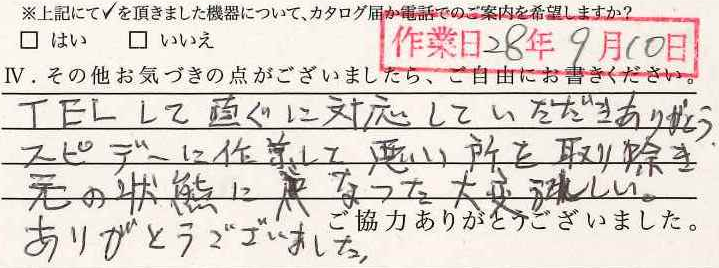 ※上記にて✓を頂きました機器について、カタログ届か電話でのご案内を希望しますか?
□ はい □ いいえ
作業日28年9月10日
Ⅳ．その他お気づきの点がございましたら、ご自由にお書きください。
TELして直ぐに対応していただきありがとう
スピーデーに作業して悪い所を取り除き
元の状態になった大変嬉しい。
ありがとうございました。
ご協力ありがとうございました。